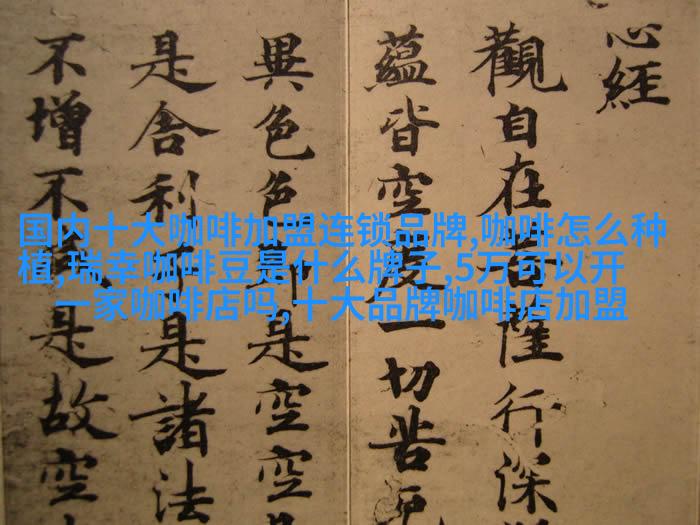 心經
觀自在菩薩行深
蘊皆空度一切苦厄
異色色即是空空
是舍利子是諸法
不增不減是故空
国内十大咖啡加盟连锁品牌,咖啡怎么种
植,瑞幸咖啡豆是什么牌子,5万可以开
一家咖啡店吗,十大品牌咖啡店加盟